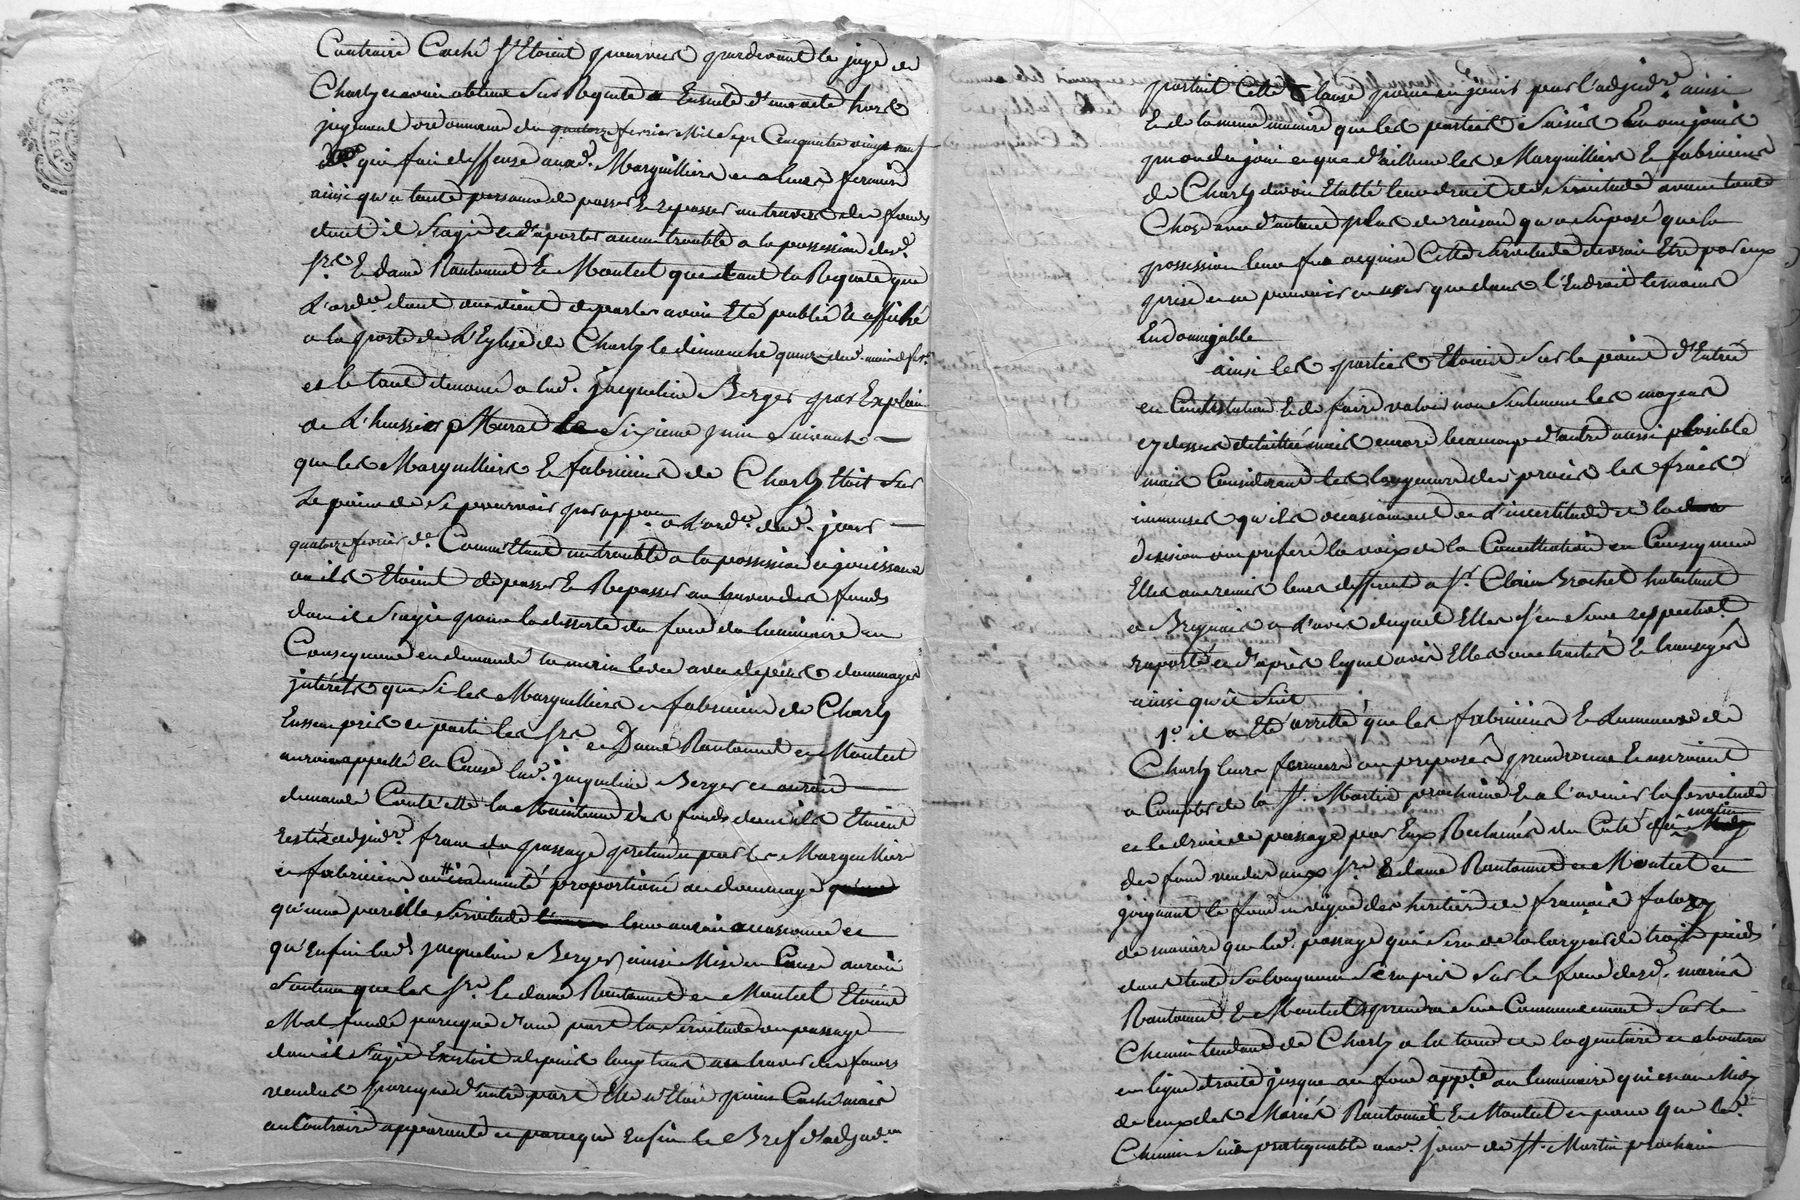 Contraire Caché s'Etoient pourvus pardevant le juge de
Charly et avoir obtenu Sur Requete Ensuite d'un acte hors
jugement ordonnance du quatorze fevrier Mil Sept Cent quatre vingt neuf
qui fait deffense auxd. Marguilliers et a leurs fermiers
ainsi qu'a toute personne de passer Et repasser au travers des fonds
dont il S'agit et d'aporter aucun trouble a la possession desd.
Srs Et dame Rantonnet Et Montet que tant la Requete que
L'ordce dont on vient de parler avoir Eté publié Et affiché
a la porte de L'Eglise de Charly le dimanche quinze dud. mois de fevr
et le tout denoncé a lad. jacqueline Berger par Exploit
de L'huissier Murat le Sixieme juin Suivant
que les Marguilliers Et fabriciens de Charly Etoit Sur
Le point de Se pourvoir par appel a L'ordce dud. jour
quatorze fevrier de Comm'Etant un trouble a la possession et jouissance
ou ils Etoient de passer Et Repasser au travers des fonds
dont il S'agit pour la desserte du fond du luminaire en
Consequence en demander la main levée avec depens dommages
jnterets que Si les Marguilliers et fabriciens de Charly
Eussent pris en partie les Srs et Dame Rantonnet et Montet
auroient appellé En Cause lad. jacqueline Berger et auroient
demandé Contr'elle la Maintenue des fonds dont ils Etoient
restés adjudres francs du passage pretendu par les Marguilliers
et fabriciens ou indemnité proportioné au dommage
qu'une pareille Servitude leur auroit occasionné et
qu'Enfin lad. jacqueline Berger ainsi Mise en Cause auroit
Soutenu que les Srs Et dame Rantonnet et Montet Etoient
Mal fondé parceque d'une part la Servitude ou passage
dont il S'agit Existoit depuis longtems au travers des fonds
vendus parceque d'autre part Elle n'Etoit point Caché mais
au Contraire apparente et parceque Enfin le Bref d'adjudon
portait Cette Clause pour en jouir par l'adjudre ainsi
Et de la meme maniere que les parties Saisies En ont jouis
pu ou du jouir et que d'ailleurs les Marguilliers Et fabriciens
de Charly doivent Etablir leur droit de Servitude avant toute
Chose avec d'autant plus de raison qu'a Suposé que la
possession leur fut acquise Cette Servitude devroit Etre par eux
prise et ne pouvoir en user que dans l'Endroit le moins
Endomagable
ainsi les parties Etoient Sur le point d'Entrer
en Contestation Et de faire valoir non Seulement les moyens
cy dessus detaillés mais encore beaucoup d'autres aussi plosible
mais Considerant les longueurs des procès les frais
immenses qu'ils occasionnent et L'incertitude de la
decision on preferé la voix de la Conciliation en Consequence
Elles ont remis leurs differents a Sr Clair Brochet habitant
a Brignais a L'avis duquel Elles S'en Sont respectivet
raporté et d'après lequel avis Elles ont traités Et transigés
ainsi qu'il Suit
1° il a Eté arretté que les fabriciens Et Luminaire de
Charly leurs fermiers ou preposés prendront Et useront
a Compter de la St. Martin prochaine Et a l'avenir la Servitude
et le droit de passage par Eux Reclamés du Coté du matin
du fond vendu aux Srs Et dame Rantonnet et Montet et
joignant le fond en vigne des heritiers de françois favery
de maniere que led. passage qui Sera de la largeur de trois pieds
dans tout Sa longueur Sera pris Sur le fond desd. mariés
Rantonnet Et Montet prendra Son Commencement Sur le
Chemin tendant de Charly a la tour et la gentiere et aboutira
en ligne droite jusque au fond appté au luminaire qui est au Midy
de Ceux des Mariés Rantonnet Et Montet et pour que led.
Chemin Soit pratiquable aud. jour de St. Martin prochain